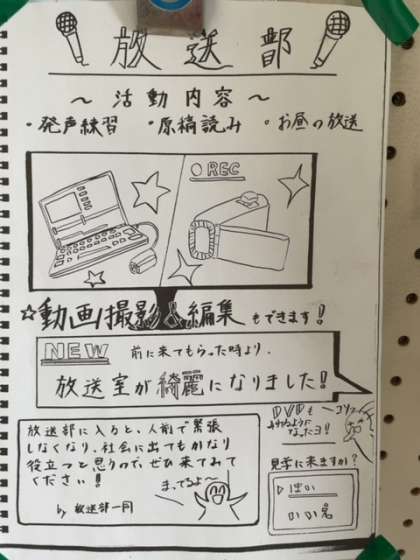 放送部
～活動内容～
・発声練習 ・原稿読み ・お昼の放送
REC
☆動画撮影&編集もできます!
NEW 前に来てもらった時より、
放送室が綺麗になりました!
DVDも
みれるように
なったヨ!
放送部に入ると、人前で緊張
しなくなり、社会に出てもかなり
役立つと思うので、ぜひ来てみて
ください!
まってるよ
by 放送部一同
見学に来ますか?
▷はい
いいえ